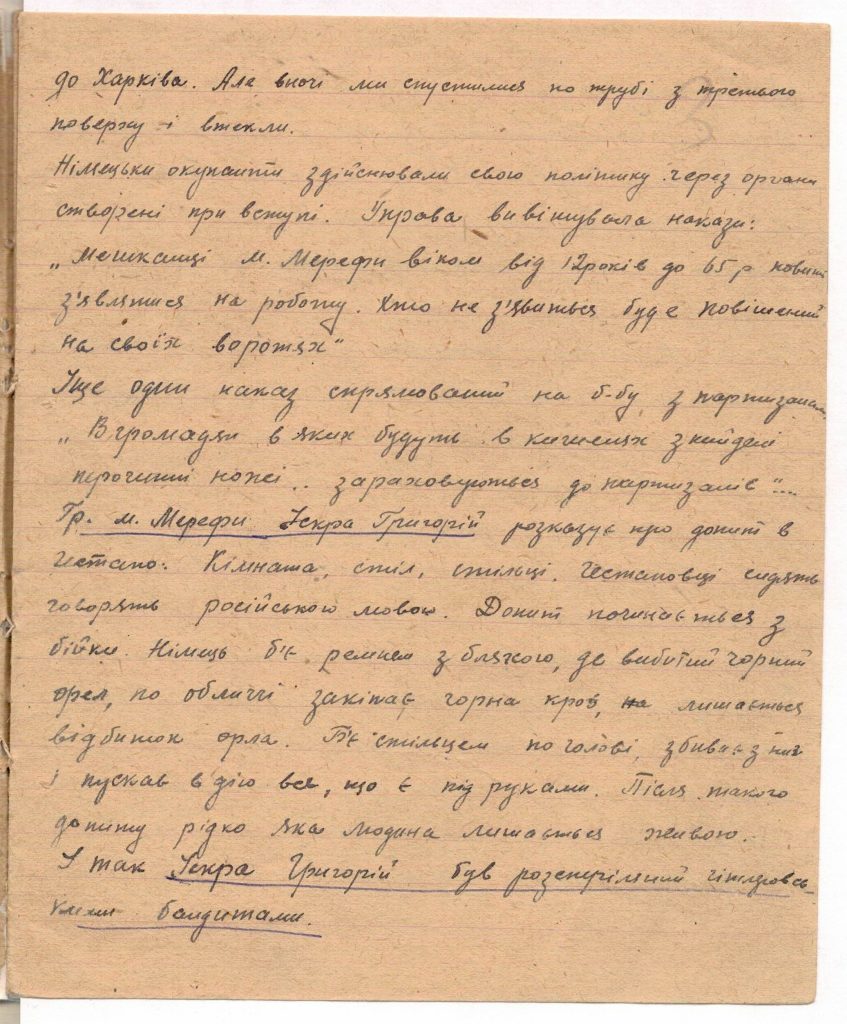 до Харківа. Але вночі ми спустилися по трубі з третього
поверху і втекли.
Німецьки окупанти здійснювали свою політику через органи
створені при вступі. Управа вивішувала накази:
„Мешканці м. Мерефи віком від 12 років до 65 р повинні
з'являтися на роботу. Хто не з'явиться буде повішений
на своїх воротях"
Іще один наказ спрямований на б-бу з партизанами
„В громадян в яких будуть в кишенях знайдені
перочинні ножі .. зараховуються до партизанів"....
Гр. м. Мерефи Іскра Григорій розказує про допит в
гестапо: Кімната, стіл, стільці. Гестаповці сидять
говорять російською мовою. Допит починається з
бійки. Німець б'є ремнем з бляхою, де вибитий чорний
орел, по обличчі закіпає чорна кров, лишається
відбиток орла. Б'є стільцем по голові, збиває з ніг
і пускав в дію все, що є під руками. Після такого
допиту рідко яка людина лишається живою.
І так Іскра Григорій був розстріляний гітлеровсь-
кими бандитами.